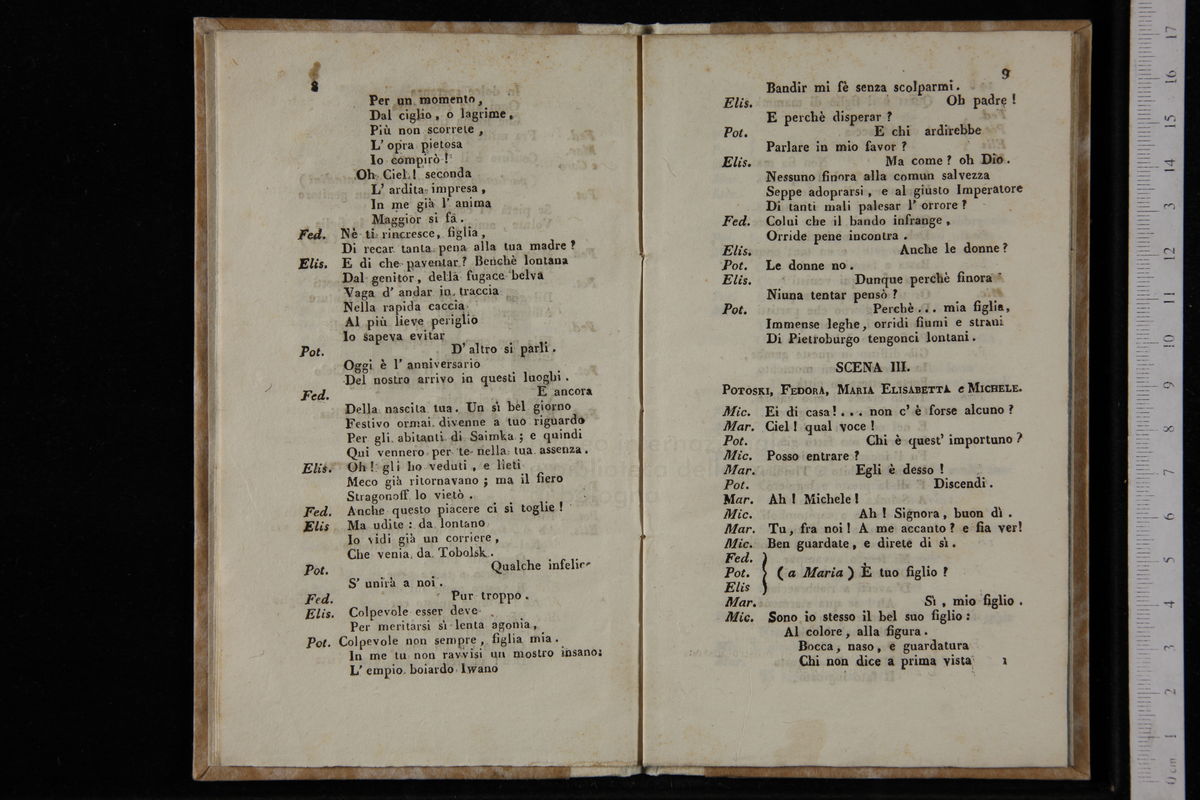 8
Per un momento,
Dal ciglio, o lagrime,
Più non scorrete,
L' opra pietosa
Io compirò!
Oh Ciel! seconda
L' ardita impresa,
In me già l' anima
Maggior si fa.
Fed. Nè ti rincresce, figlia,
Di recar tanta pena alla tua madre?
Elis. E di che paventar? Benchè lontana
Dal genitor, della fugace belva
Vaga d' andar in traccia
Nella rapida caccia
Al più lieve periglio
Io sapeva evitar
Pot. D' altro si parli.
Oggi è l' anniversario
Del nostro arrivo in questi luoghi.
Fed. E ancora
Della nascita tua. Un sì bel giorno
Festivo ormai divenne a tuo riguardo
Per gli abitanti di Saimka; e quindi
Qui vennero per te nella tua assenza.
Elis. Oh! gli ho veduti, e lieti
Meco già ritornavano; ma il fiero
Stragonoff lo vietò.
Fed. Anche questo piacere ci si toglie!
Elis Ma udite: da lontano
Io vidi già un corriere,
Che venia da Tobolsk.
Pot. Qualche infelice
S' unirà a noi.
Fed. Pur troppo.
Elis. Colpevole esser deve
Per meritarsi sì lenta agonia,
Pot. Colpevole non sempre, figlia mia.
In me tu non ravvisi un mostro insano:
L' empio boiardo Iwano
9
Bandir mi fè senza scolparmi.
Elis. Oh padre!
E perchè disperar?
Pot. E chi ardirebbe
Parlare in mio favor?
Elis. Ma come? oh Dio.
Nessuno finora alla comun salvezza
Seppe adoprarsi, e al giusto Imperatore
Di tanti mali palesar l' orrore?
Fed. Colui che il bando infrange,
Orride pene incontra.
Elis. Anche le donne?
Pot. Le donne no.
Elis. Dunque perchè finora
Niuna tentar pensò?
Pot. Perchè... mia figlia,
Immense leghe, orridi fiumi e strani
Di Pietroburgo tengonci lontani.
SCENA III.
POTOSKI, FEDORA, MARIA ELISABETTA e MICHELE.
Mic. Ei di casa!... non c' è forse alcuno?
Mar. Ciel! qual voce!
Pot. Chi è quest' importuno?
Mic. Posso entrare?
Mar. Egli è desso!
Pot. Discendi.
Mar. Ah! Michele!
Mic. Ah! Signora, buon dì.
Mar. Tu, fra noi! A me accanto? e fia ver!
Mic. Ben guardate, e direte di sì.
Fed.
Pot. } (a Maria) È tuo figlio?
Elis
Mar. Sì, mio figlio.
Mic. Sono io stesso il bel suo figlio:
Al colore, alla figura.
Bocca, naso, e guardatura
Chi non dice a prima vista 1